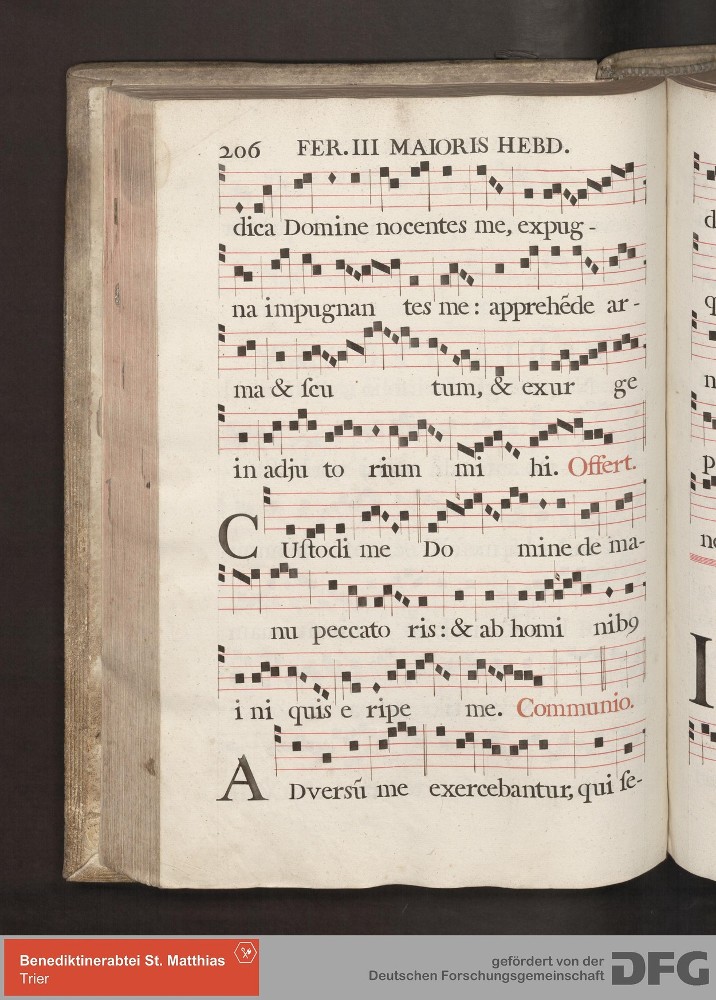 206 FER. III MAIORIS HEBD.
dica Domine nocentes me, expug -
na impugnan tes me : apprehẽde ar -
ma & ſcu tum, & exur ge
in adju to rium mi hi. Offert.
CUſtodi me Do mine de ma-
nu peccato ris : & ab homi nibꝰ
i ni quis e ripe me. Communio.
ADversũ me exercebantur, qui ſe-
Benediktinerabtei St. Matthias
Trier
gefördert von der
Deutschen Forschungsgemeinschaft
DFG